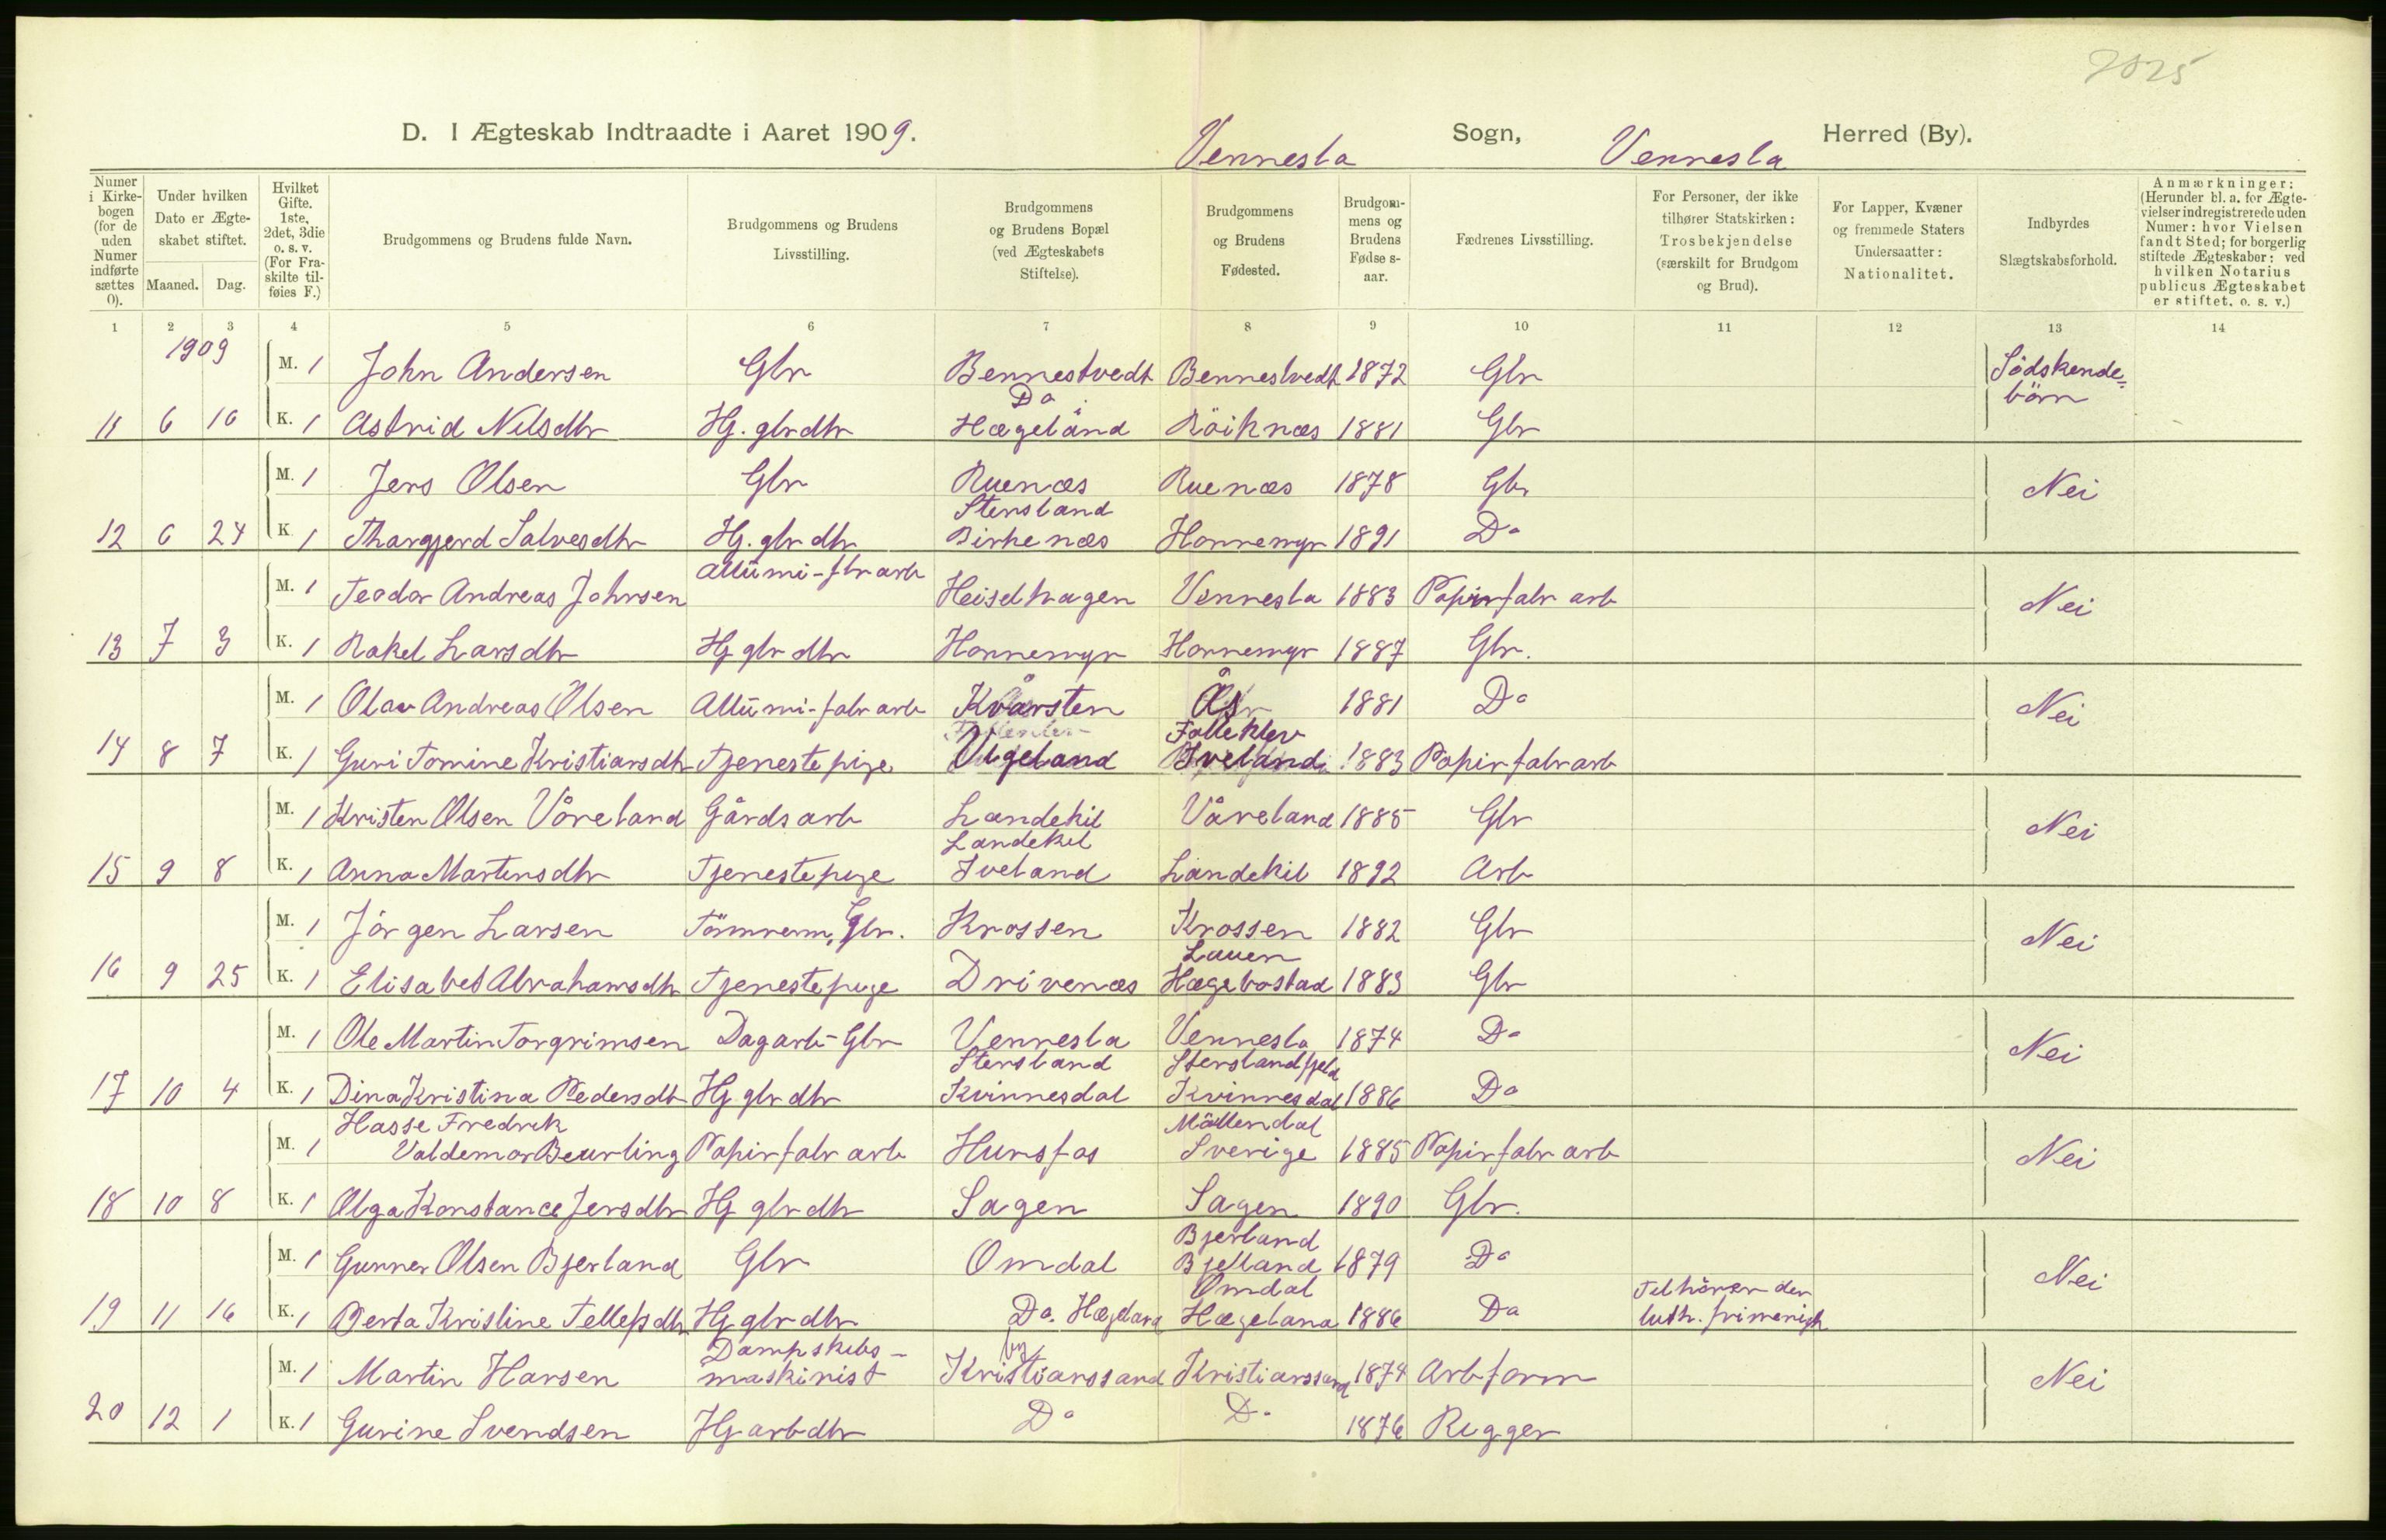 2025
D. I Ægteskab Indtraadte i Aaret 1909. Vennesla Sogn, Vennesla Herred (By).
Numer i Kirkebogen (for de uden Numer indførte sættes 0).
Under hvilken Dato er Ægteskabet stiftet.
Maaned. Dag.
Hvilket Gifte. 1ste, 2det, 3die o. s. v. (For Fraskilte tilføies F.)
Brudgommens og Brudens fulde Navn.
Brudgommens og Brudens Livsstilling.
Brudgommens og Brudens Bopæl (ved Ægteskabets Stiftelse).
Brudgommens og Brudens Fødested.
Brudgommens og Brudens Fødselsaar.
Fædrenes Livsstilling.
For Personer, der ikke tilhører Statskirken: Trosbekjendelse (særskilt for Brudgom og Brud).
For Lapper, Kvæner og fremmede Staters Undersaatter: Nationalitet.
Indbyrdes Slægtskabsforhold.
Anmærkninger: (Herunder bl. a. for Ægtevielser indregistrerede uden Numer: hvor Vielsen fandt Sted; for borgerlig stiftede Ægteskaber: ved hvilken Notarius publicus Ægteskabet er stiftet, o. s. v.)
1 2 3 4 5 6 7 8 9 10 11 12 13 14
1909
M. 1 John Andersen Gbr Bennestvedt Bennestvedt 1872 Gbr Södskendebörn
11 6 10 K. 1 Astrid Nilsdtr Hj. gbr dtr Do Hægeland Röiknæs 1881 Gbr
M. 1 Jens Olsen Gbr Ruenæs Ruenæs 1878 Gbr Nei
12 6 24 K. 1 Thargjerd Salvesdtr Hj. gbr dtr Stensland Birkenæs Honnemyr 1891 Do
M. 1 Teodor Andreas Johnsen Allumi-fbr arb Heiselhagen Vennesla 1883 Papirfabr arb Nei
13 7 3 K. 1 Rakel Larsdtr Hj gbr dtr Honnemyr Honnemyr 1887 Gbr.
M. 1 Olav Andreas Olsen Allumi-fabr arb Kvarsten Ås 1881 Do Nei
14 8 7 K. 1 Guri Tomine Kristiansdtr Tjenestepige Ugeland Falleklev Iveland 1883 Papirfabr arb
M. 1 Kristen Olsen Våreland Gårdsarb Landekil Våreland 1885 Gbr Nei
15 9 8 K. 1 Anna Martinsdtr Tjenestepige Landekil Iveland Landekil 1892 Arb
M. 1 Jörgen Larsen Tömrerm, Gbr. Krossen Krossen 1882 Gbr Nei
16 9 25 K. 1 Elisabet Abrahamsdtr Tjenestepige Drivenæs Lauen Hægebostad 1883 Gbr
M. 1 Ole Martin Torgrimsen Dagarb-Gbr Vennesla Vennesla 1874 Do Nei
17 10 4 K. 1 Dina Kristina Pedersdtr Hj gbr dtr Stensland Kvinnesdal Stenslandfjeld Kvinnesdal 1886 Do
M. 1 Hasse Fredrik Valdemar Beurling Papirfabr arb Hunsfos Möllendal Sverige 1885 Papirfabr arb Nei
18 10 8 K. 1 Olga Konstance Jensdtr Hj gbr dtr Sagen Sagen 1890 Gbr.
M. 1 Gunner Olsen Bjerland Gbr Omdal Bjerland Bjelland 1879 Do Nei
19 11 16 K. 1 Berta Kristine Tellefsdtr Hj gbr dtr Do. Hægeland Omdal Hægeland 1886 Do Tilhörer den luth. frimenigh
M. 1 Martin Hansen Dampskibsmaskinist Kristianssand by Kristianssand 1874 Arbform Nei
20 12 1 K. 1 Gurine Svendsen Hj arb dtr Do Do 1876 Rigger